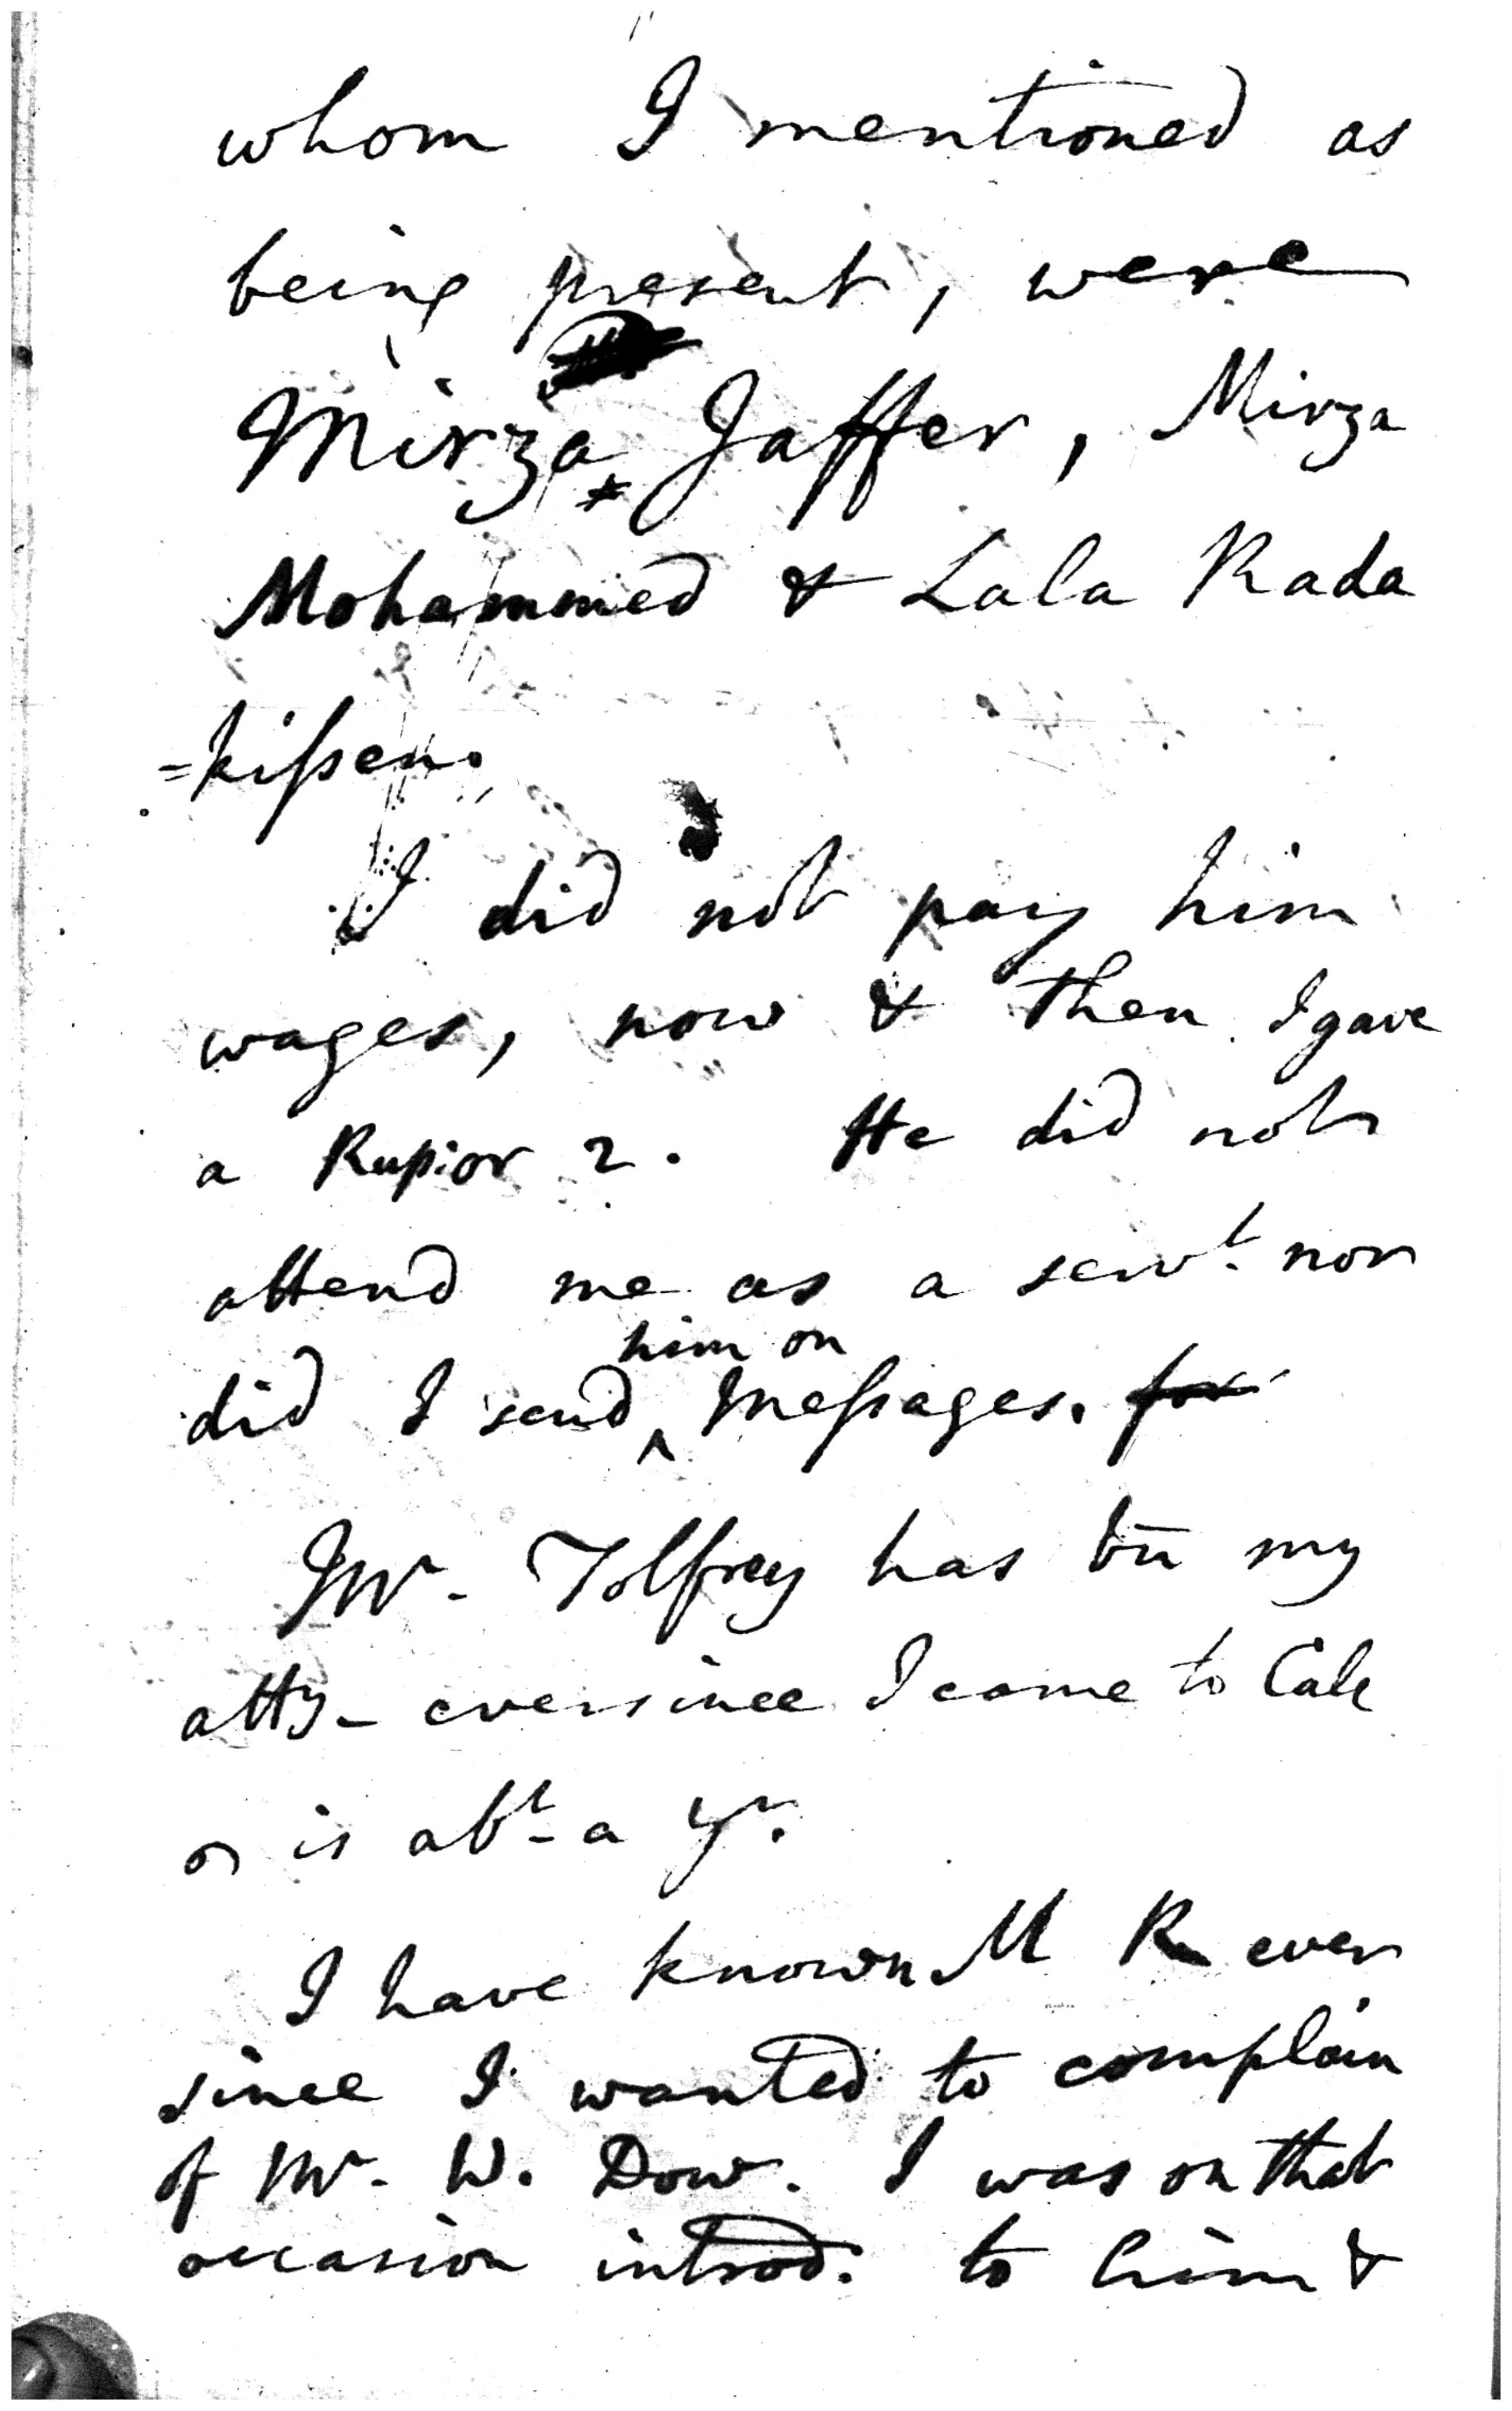 whom I mentioned as
being present, were
Mirza Jaffer, Mirza
Mohammed & Lala Rada
=kiſsen.
I did not pay him
wages, now & then I gave
a Rup: or 2. He did not
attend me as a servt. nor
did I send him on Meſsages. for
Mr. Tolfrey has bn̄ my
atty - ever since I came to Calc
is abt. a yr.
I have known M R ever
since I wanted to complain
of Mr. W. Dow. I was on that
occasion introd: to him &